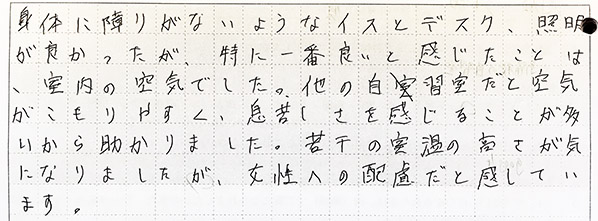 身体に障りがないようなイスとデスク、照明
が良かったが、特に一番良いと感じたことは
、室内の空気でした。他の自習室だと空気
がこもりやすく、息苦しさを感じることが多
いから助かりました。若干の室温の高さが気
になりましたが、女性への配慮だと感じてい
ます。